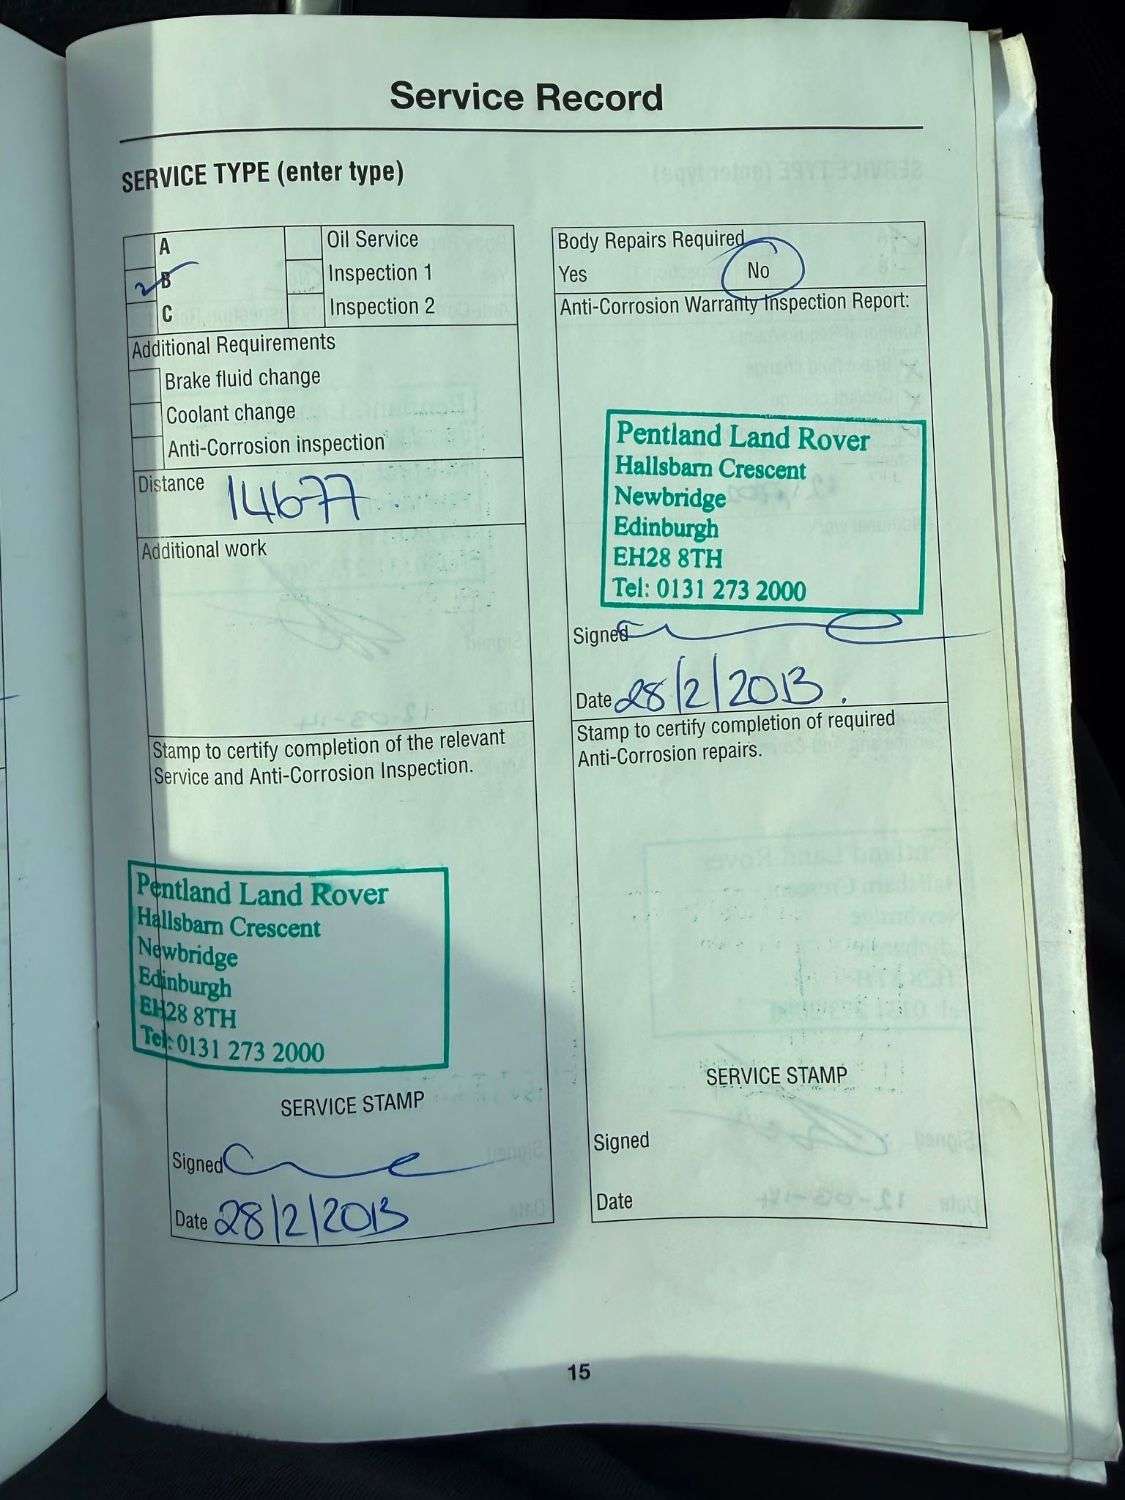 Service Record
SERVICE TYPE (enter type)
A
B
C
Oil Service
Inspection 1
Inspection 2
Additional Requirements
Brake fluid change
Coolant change
Anti-Corrosion inspection
Distance 14677
Additional work
Stamp to certify completion of the relevant
Service and Anti-Corrosion Inspection.
Pentland Land Rover
Hallsbarn Crescent
Newbridge
Edinburgh
EH28 8TH
Tel: 0131 273 2000
SERVICE STAMP
Signed
Date 28/2/2013
Body Repairs Required
Yes No
Anti-Corrosion Warranty Inspection Report:
Pentland Land Rover
Hallsbarn Crescent
Newbridge
Edinburgh
EH28 8TH
Tel: 0131 273 2000
Signed
Date 28/2/2013.
Stamp to certify completion of required
Anti-Corrosion repairs.
SERVICE STAMP
Signed
Date
15